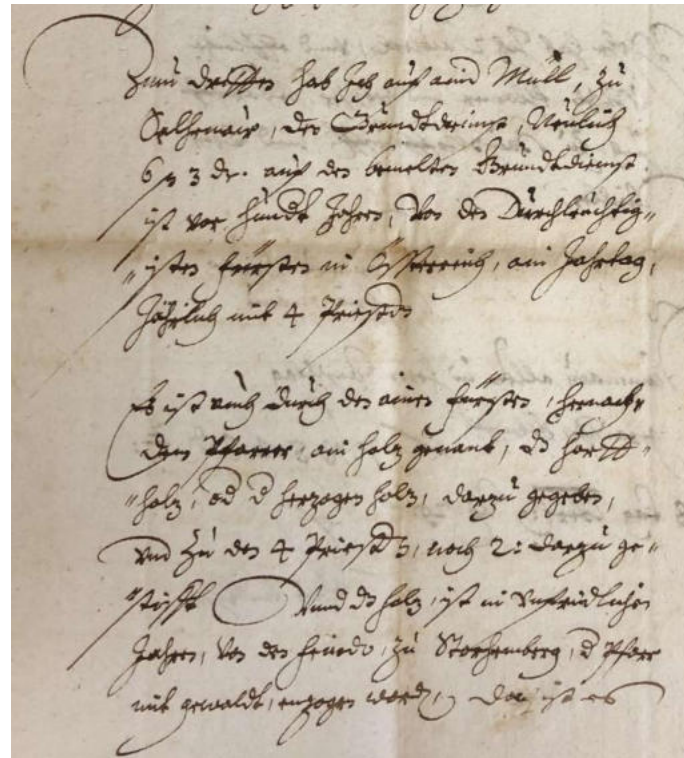 Zum dritten hab Ich auf ainer Müll, zu
den Grundtdienst, Nemlich
6 ß 3 dr. auf den bemelten Grundtdienst
ist vor hundt Jahren, von den Durchleuchtig„
„isten Fürsten in Össterreich, ain Jahrtag,
Jährlich mit 4 Priestern
Es ist auch durch den ainen Fürsten, hernach„
dem Pfarrer, ain holz genant, dz
„holz, od d herzogen holz, darzu gegeben,
vnd Zu den 4 Priestern, noch 2: darzu ge„
„stifft Vnnd dz holz, ist in Vnfridlichen
Jahren, von den Feindn, zu Storhemberg, d Pfarr
mit gewaldt, enzogen worden, Da ist es